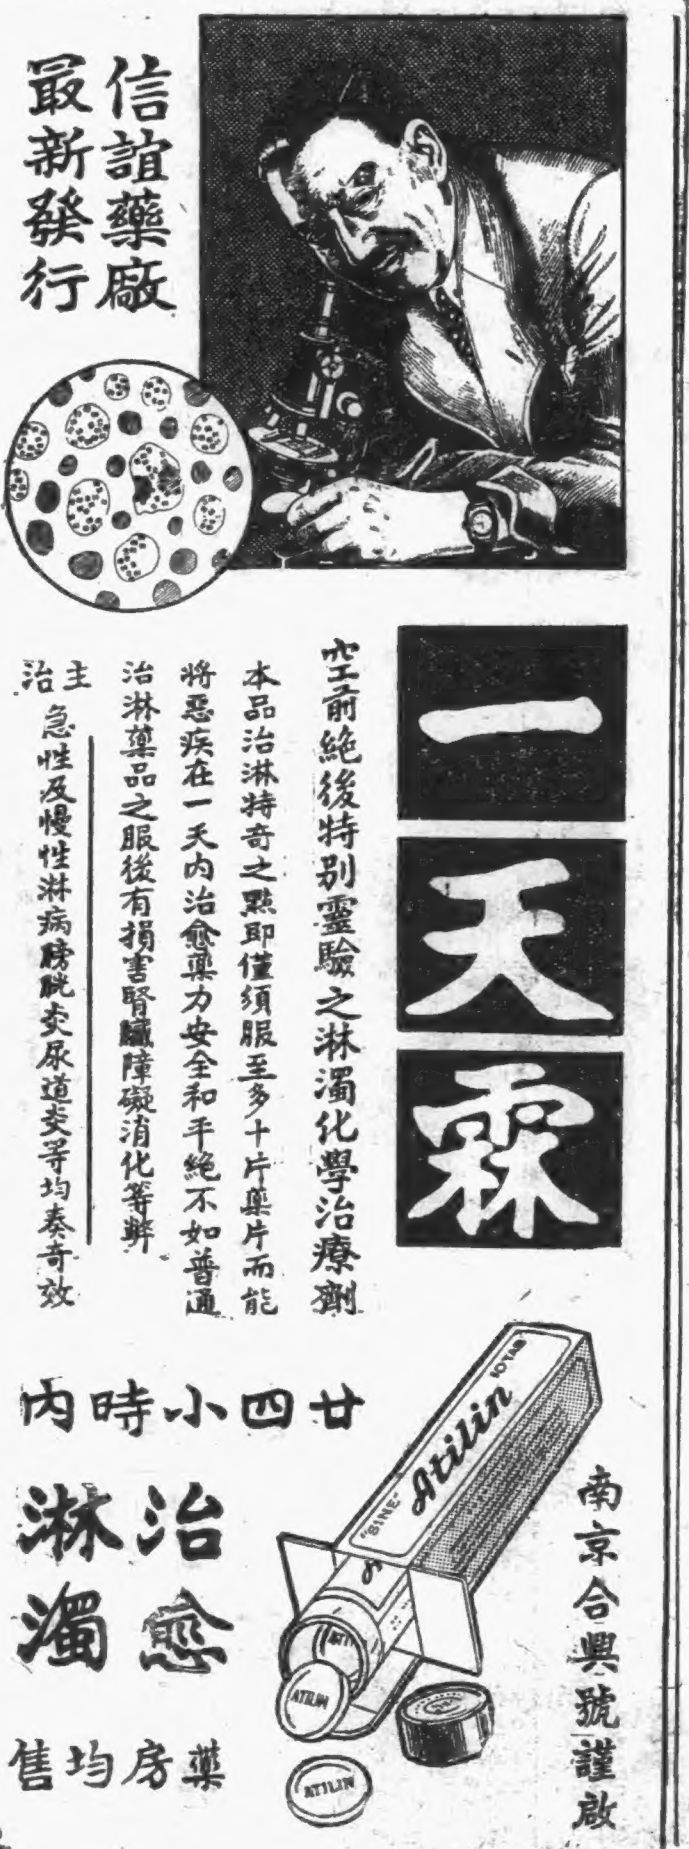 信誼藥廠
最新發行
一天霖
空前絕後特別靈驗之淋濁化學治療劑
本品治淋特奇之點即僅須服至多十片藥片而能
將惡疾在一天內治愈藥力安全和平絕不如普通
治淋藥品之服後有損害腎臟障礙消化等弊
主治
急性及慢性淋病膀胱炎尿道炎等均奏奇效
廿四小時內
治愈
淋濁
藥房均售
南京合興號謹啟
10 TAB
Atilin
"SINE"
ATILIN
ATILIN